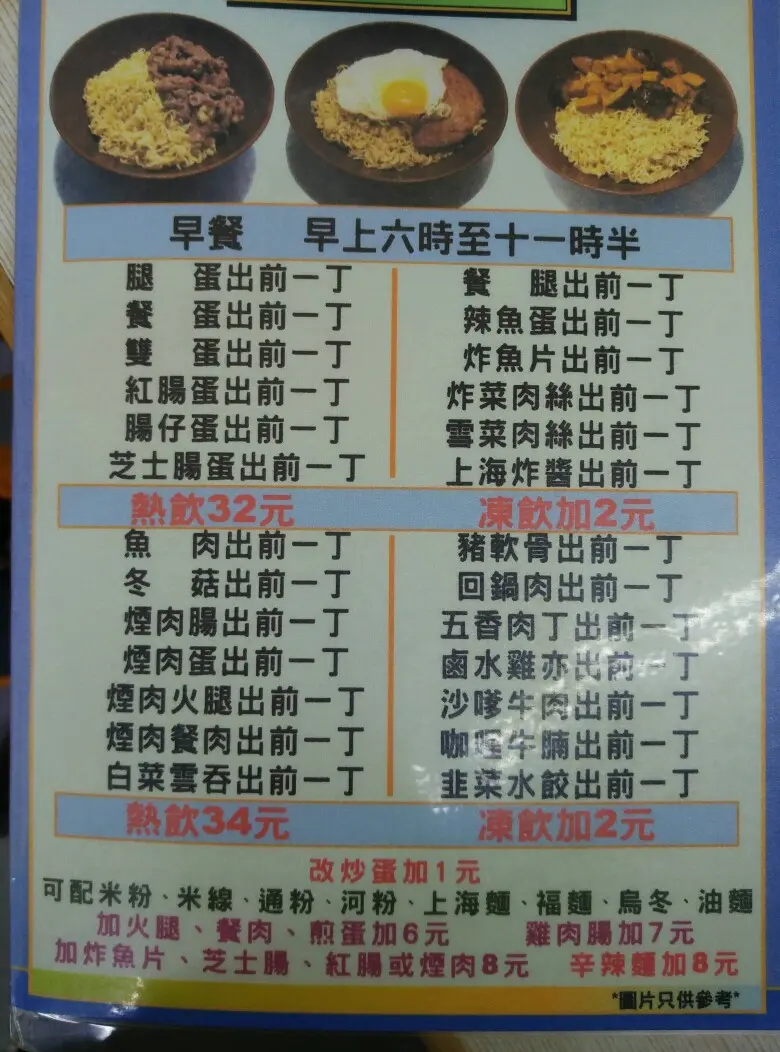 早餐 早上六時至十一時半
腿 蛋出前一丁
餐 蛋出前一丁
雙 蛋出前一丁
紅腸蛋出前一丁
腸仔蛋出前一丁
芝士腸蛋出前一丁
餐 腿出前一丁
辣魚蛋出前一丁
炸魚片出前一丁
炸菜肉絲出前一丁
雪菜肉絲出前一丁
上海炸醬出前一丁
熱飲32元 凍飲加2元
魚 肉出前一丁
冬 菇出前一丁
煙肉腸出前一丁
煙肉蛋出前一丁
煙肉火腿出前一丁
煙肉餐肉出前一丁
白菜雲吞出前一丁
豬軟骨出前一丁
回鍋肉出前一丁
五香肉丁出前一丁
鹵水雞亦出前一丁
沙嗲牛肉出前一丁
咖喱牛腩出前一丁
韭菜水餃出前一丁
熱飲34元 凍飲加2元
改炒蛋加1元
可配米粉、米線、通粉、河粉、上海麵、福麵、烏冬、油麵
加火腿、餐肉、煎蛋加6元 雞肉腸加7元
加炸魚片、芝士腸、紅腸或煙肉8元 辛辣麵加8元
*圖片只供參考*